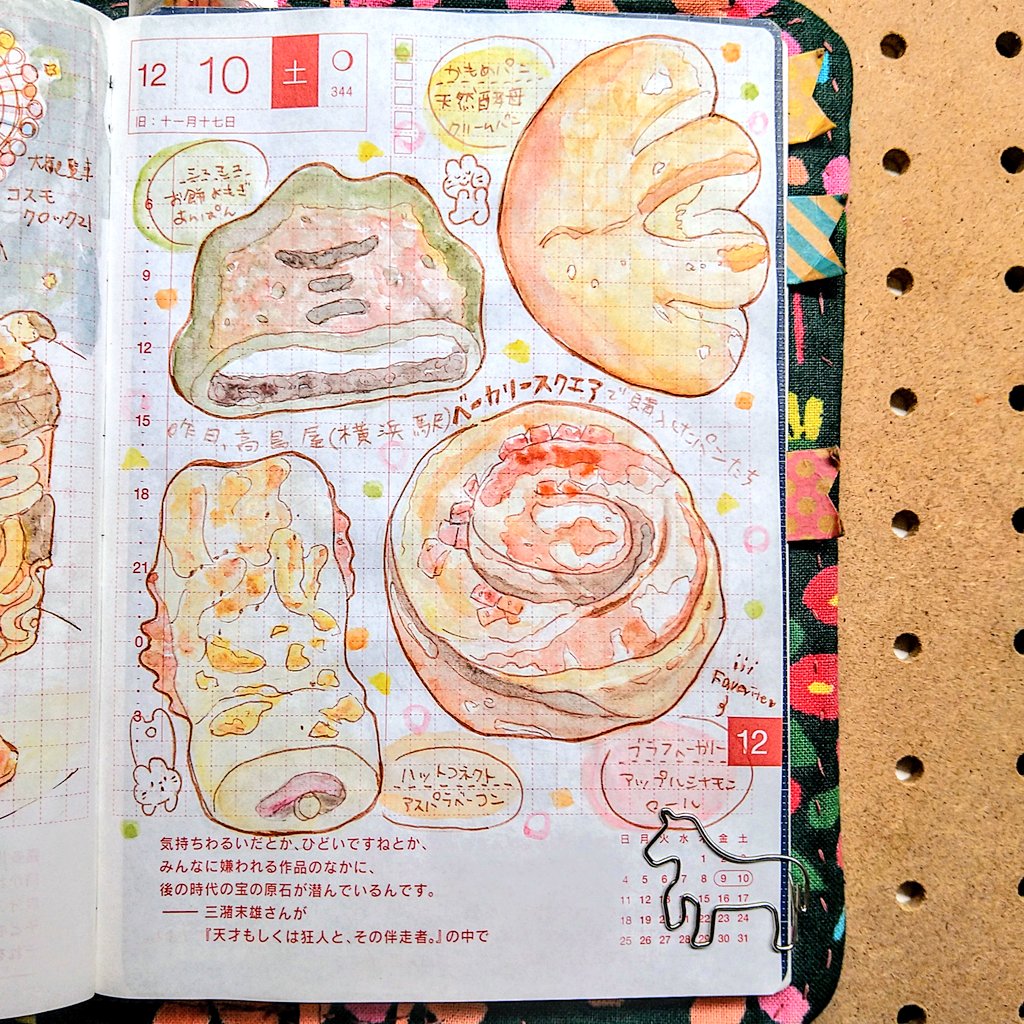 大観覧車
コスモ
クロック21
12 10 土
344
旧：十一月十七日
かもめパン
天然酵母
クリームパン
お餅よもぎ
あんぱん
6
9
12
15
18
21
0
3
昨日、高島屋(横浜駅)ベーカリースクエアで購入したパンたち
Favorites
12
ハットコネクト
アスパラベーコン
ブラフベーカリー
アップルシナモン
ロール
気持ちわるいだとか、ひどいですねとか、
みんなに嫌われる作品のなかに、
後の時代の宝の原石が潜んでいるんです。
—— 三潴末雄さんが
『天才もしくは狂人と、その伴走者。』の中で
日 月 火 水 木 金 土
1 2 3
4 5 6 7 8 9 10
11 12 13 14 15 16 17
18 19 20 21 22 23 24
25 26 27 28 29 30 31